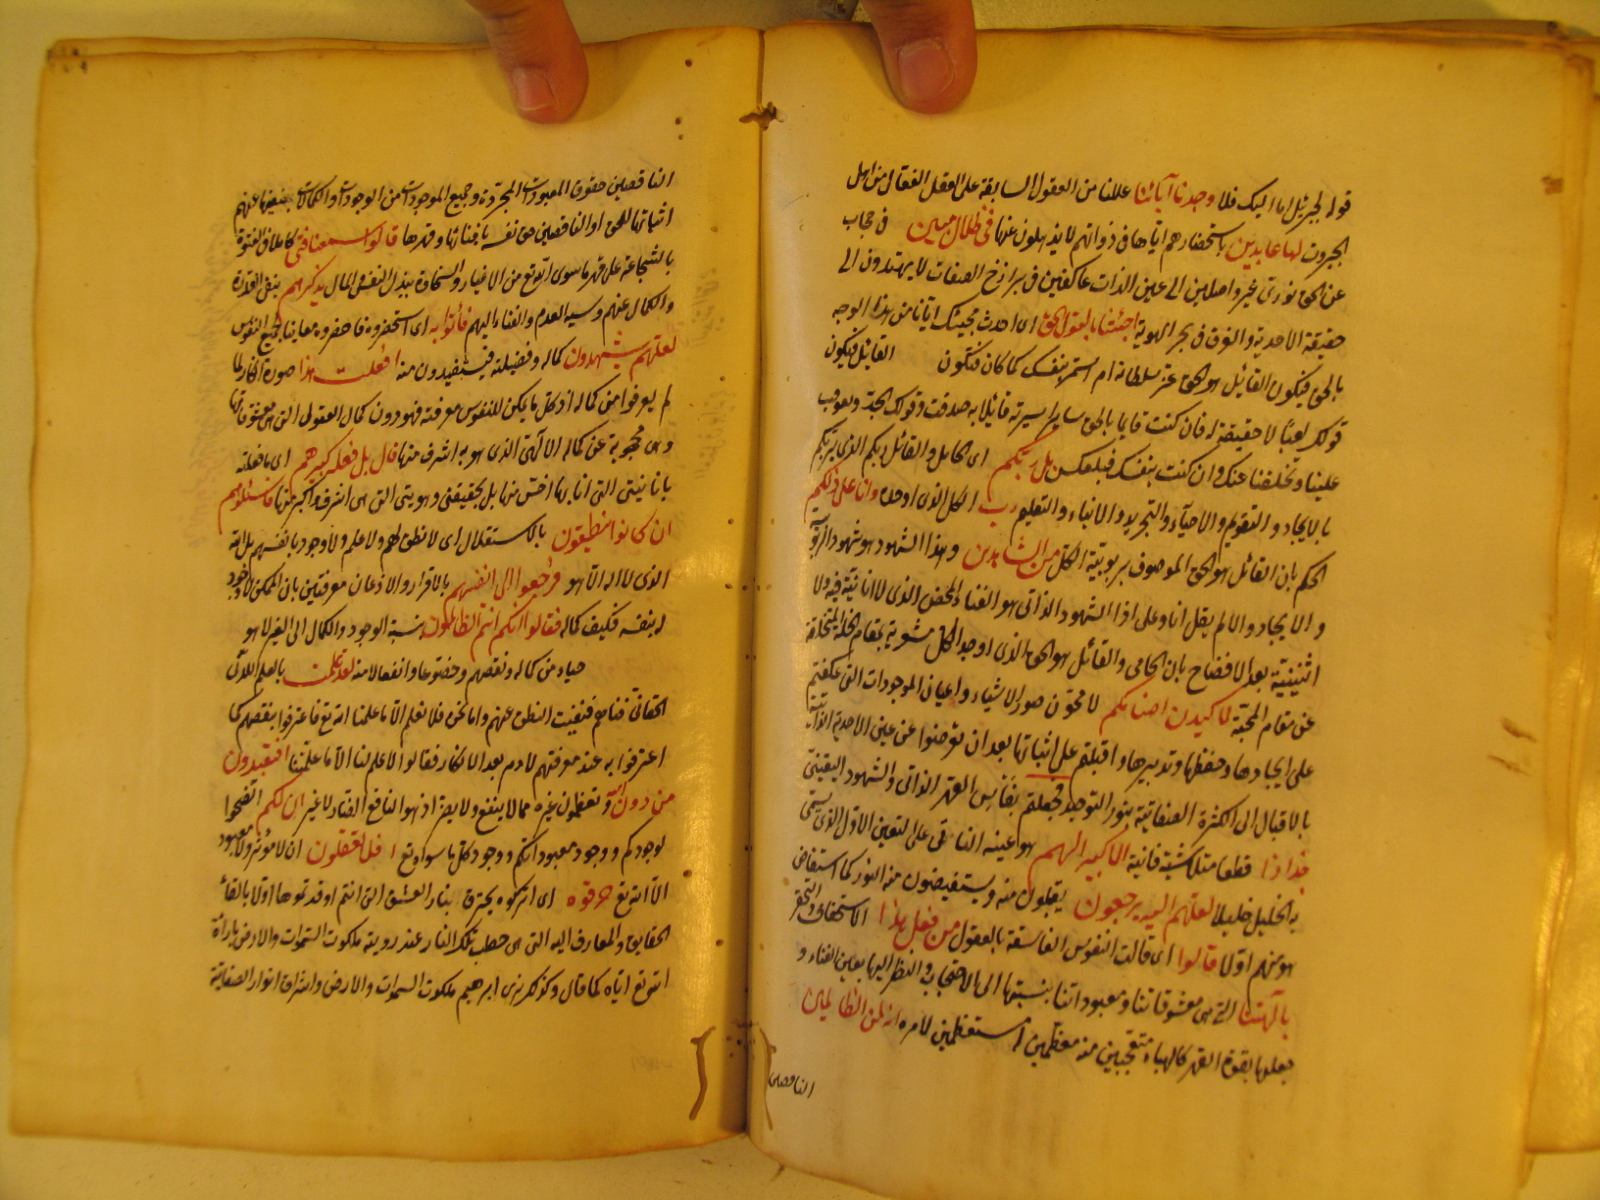 قوله لجبرئيل اما اليك فلا وجدنا آبائنا عللنا من العقول السابقة على العقل الفعال من اهل
الجبروت لها عابدين باستحضارهم اياها في ذواتهم لا يذهلون عنها في ضلال مبين في حجاب
عن الحق نوري غير واصلين الى عين الذات عاكفين في برازخ الصفات لا يهتدون الى
حقيقة الاحدية والغرق في بحر الهوية اجئتنا بالحق اى احدث مجيئك ايانا من هذا الوجه
بالحق فيكون القائل هو الحق عز سلطانه ام استمر بنفسك كما كان فتكون القائل فيكون
قولك لعبا لا حقيقة له فان كنت قايما بالحق سايرا بسيره قائلا به صدقت وقولك الجد وتفوقت
علينا وتخلفنا عنك وان كنت بنفسك فبالعكس بل ربكم اى الجايل والقائل ربكم الذى يربكم
بالايجاد والتقويم والاحياء والتجريد والانباء والتعليم رب الكل الذى اوجده وانا على ذلكم
الحكم بان القائل هو الحق الموصوف بربوبية الكل من الشاهدين وهذا الشهود هو شهود الربوبية
والايجاد والا لم يقل انا وعلى اذ الشهود الذاتى هو الفناء المحض الذى لا انانية فيه ولا
اثنينية بعد الافصاح بان الجاعى والقائل هو الحق الذى اوجد الكل مشوبة بمقام الخلة المتخلفة
عن مقام المحبة لاكيدن اصنامكم لا محون صور الاشياء واعيان الموجودات التى عكفتم
على ايجادها وحفظها وتدبيرها واقبلتم على اثباتها بعد ان تعرضوا عن عين الاحدية الذاتية
بالاقبال الى الكثرة الصفاتية بنور التوحيد فجعلتم بفأس القهر الذاتى والشهود اليقيني
جذاذا قطعا متلاشية فانية الا كبيرا لهم هو عينه الباقى على التعين الاول الذى يسمى
به الخليل خليلا لعلهم اليه يرجعون يقبلون منه ويستفيضون منه النور كما استفاض
هو منهم اولا قالوا اى قالت النفوس الفاسقة بالعقول من فعل هذا الاستخفاف والتحقير
بآلهتنا التى هى معشوقاتنا ومعبوداتنا بنسبتها الى الاحتجاب والنظر اليها بعين الفناء و
جعلها بقوة القهر كالهباء متعجبين منه معظمين مستعظمين لامره انه لمن الظالمين
الناقصين
الناقصين حقوق المعبودات المجردة وجميع الموجودات من الوجودات والكمالات بنفيها عنهم
اثباتها للحق او الناقصين حق نفسه بافنائها وقهرها قالوا سمعنا فتى كاملا فى الفتوة
بالشجاعة على قهر ما سوى الله تع من الاغيار والسخاوة ببذل النفس والمال يذكرهم بنفى القدرة
والكمال عنهم ونسبة العدم والفناء اليهم فأتوا به اى استحضروه فاحضروه معاينا لجميع النفوس
لعلهم يشهدون كماله وفضيلته فيستفيدون منه افعلت هذا صورة انكار لما
لم يعرفوا من كماله اذ كل ما يمكن للنفوس معرفته فهو دون كمال العقول التى هى معشوقاتها
وهى محجوبة عن كماله الالهى الذى هو به اشرف منها قال بل فعله كبيرهم اى ما فعلته
بانانيتى التى انا بها اخس منها بل بحقيقتى وهويتى التى هى اشرف واكبر منها فاسئلوهم
ان كانوا ينطقون بالاستقلال اى لا نطق لهم ولا علم ولا وجود بانفسهم بل بالله
الذى لا اله الا هو فرجعوا الى انفسهم بالاقرار والاذعان معرفين بان الممكن لا وجود
له بنفسه فكيف كماله فقالوا انكم انتم الظالمون نسبة الوجود والكمال الى الغير لا هو
حياء من كماله ونقصهم وخضوعا وانفعالا منه لقد علمت بالعلم اللدنى
الحقانى فنائهم فنفيت النطق عنهم واما نحن فلا نعلم الا ما علمنا الله تع فاعترفوا بنقصهم كما
اعترفوا به عند معرفتهم لادم بعد الانكار فقالوا لا علم لنا الا ما علمتنا افتعبدون
من دون الله وتعظمون غيره مما لا ينفع ولا يضر اذ هو النافع الضار لا غير اف لكم اتضجر
لوجودكم ووجود معبوداتكم ووجود كل ما سواه تع افلا تعقلون ان لا مؤثر ولا معبود
الا الله تع حرقوه اى اتركوه يحترق بنار العشق التى انتم اوقدتموها اولا بالقاء
الحقايق والمعارف اليه التى هى حطب تلك النار عند رؤيته ملكوت السموات والارض باراءة
الله تع اياه كما قال وكذلك نرى ابرهيم ملكوت السموات والارض واشراق انوار الصفاتية